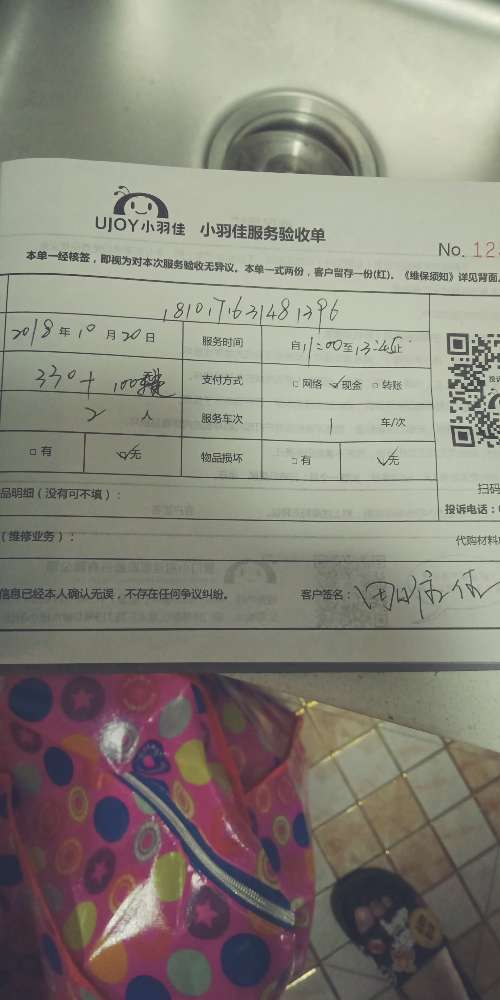 UJOY小羽佳 小羽佳服务验收单
No. 12
本单一经核签，即视为对本次服务验收无异议。本单一式两份，客户留存一份(红)。《维保须知》详见背面
18101763148396
2018年10月20日 服务时间 自11:00至13:45止
330+100 支付方式 □网络 ☑现金 □转账
2人 服务车次 1 车/次
□有 ☑无 物品损坏 □有 ☑无
品明细（没有可不填）： 扫码
投诉电话：
（维修业务）： 代购材料
信息已经本人确认无误，不存在任何争议纠纷。 客户签名：